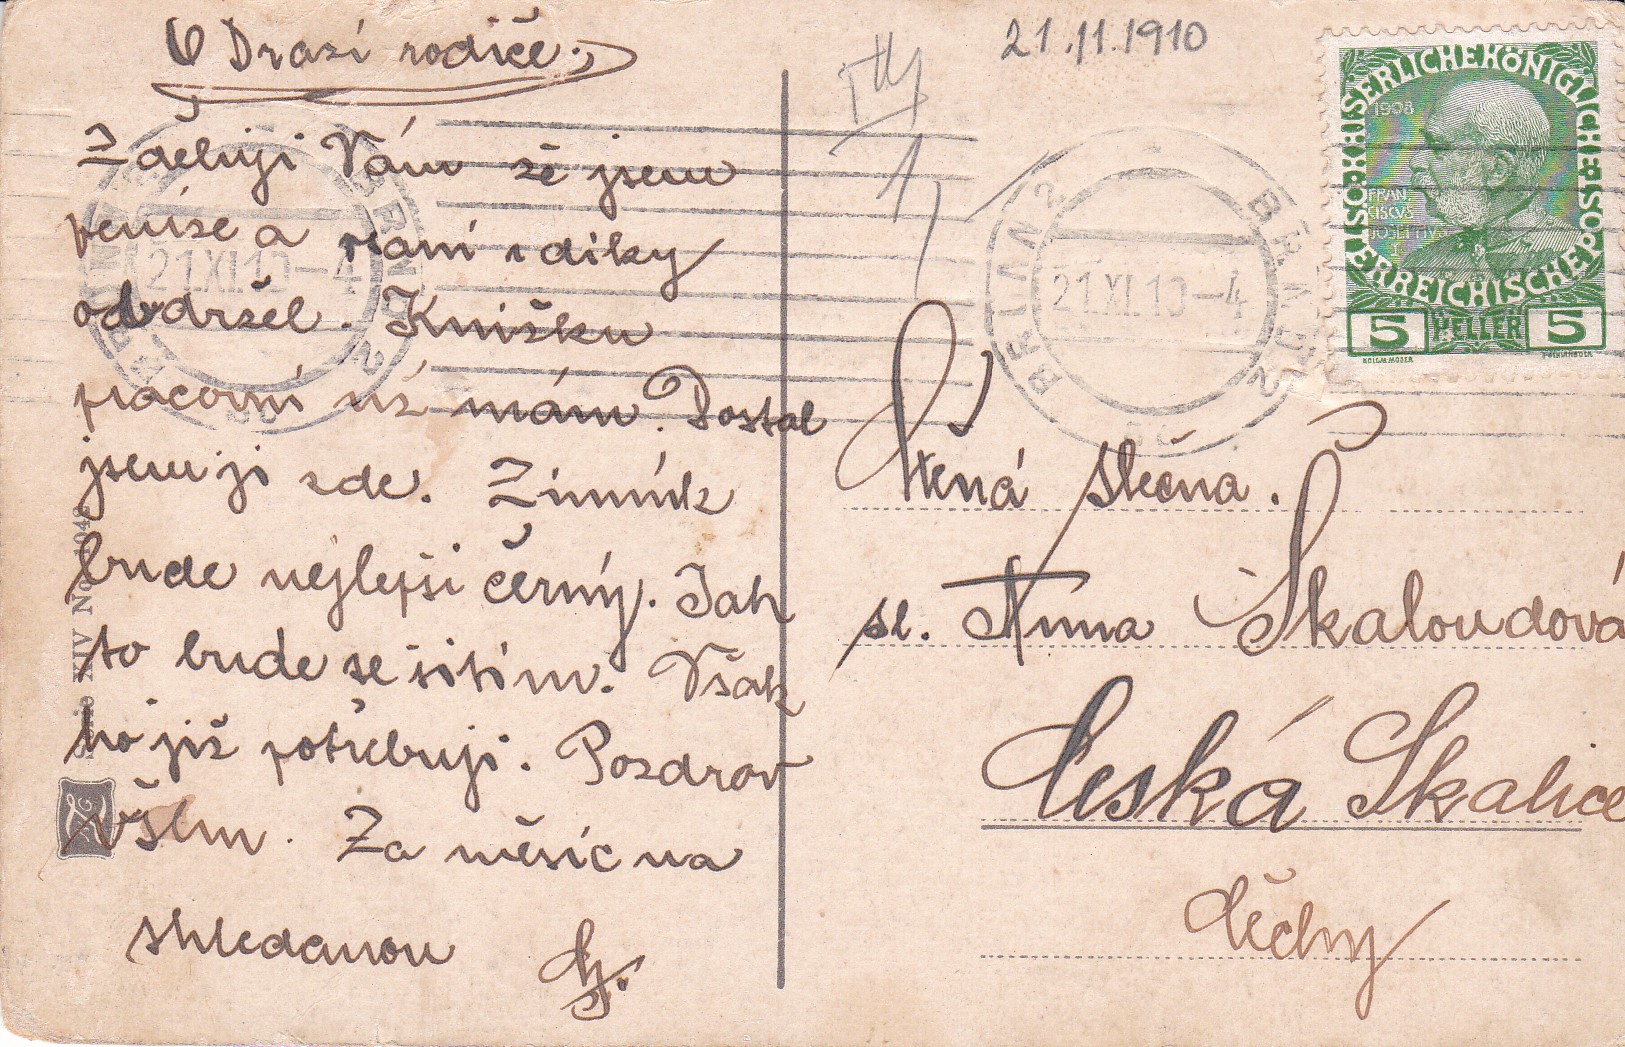 Drazí rodiče.
21.11.1910
Zděluji Vám že jsem
peníze a psaní s díky
obdržel. Knížku
pracovní už mám. Dostal
jsem ji zde. Zimník
bude nejlepší černý. Jak
to bude se šitím. Však
ho již potřebuji. Pozdrav
všem. Za měsíc na
shledanou
BRÜNN 2 BRNO 2
21.XI.10-4
BRÜNN 2 BRNO 2
21.XI.10-4
KAISERLICHEKÖNIGLICHE
ÖSTERREICHISCHE POST
1908
FRAN
CISCVS
JOSEPHVS
I
5 HELLER 5
KOLM.MOSER
Ctěná slečna.
sl. Anna Škaloudová
Česká Skalice
Čechy
XIV No